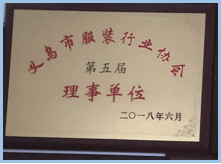 义乌市服装行业协会
第五届
理事单位
二〇一八年六月